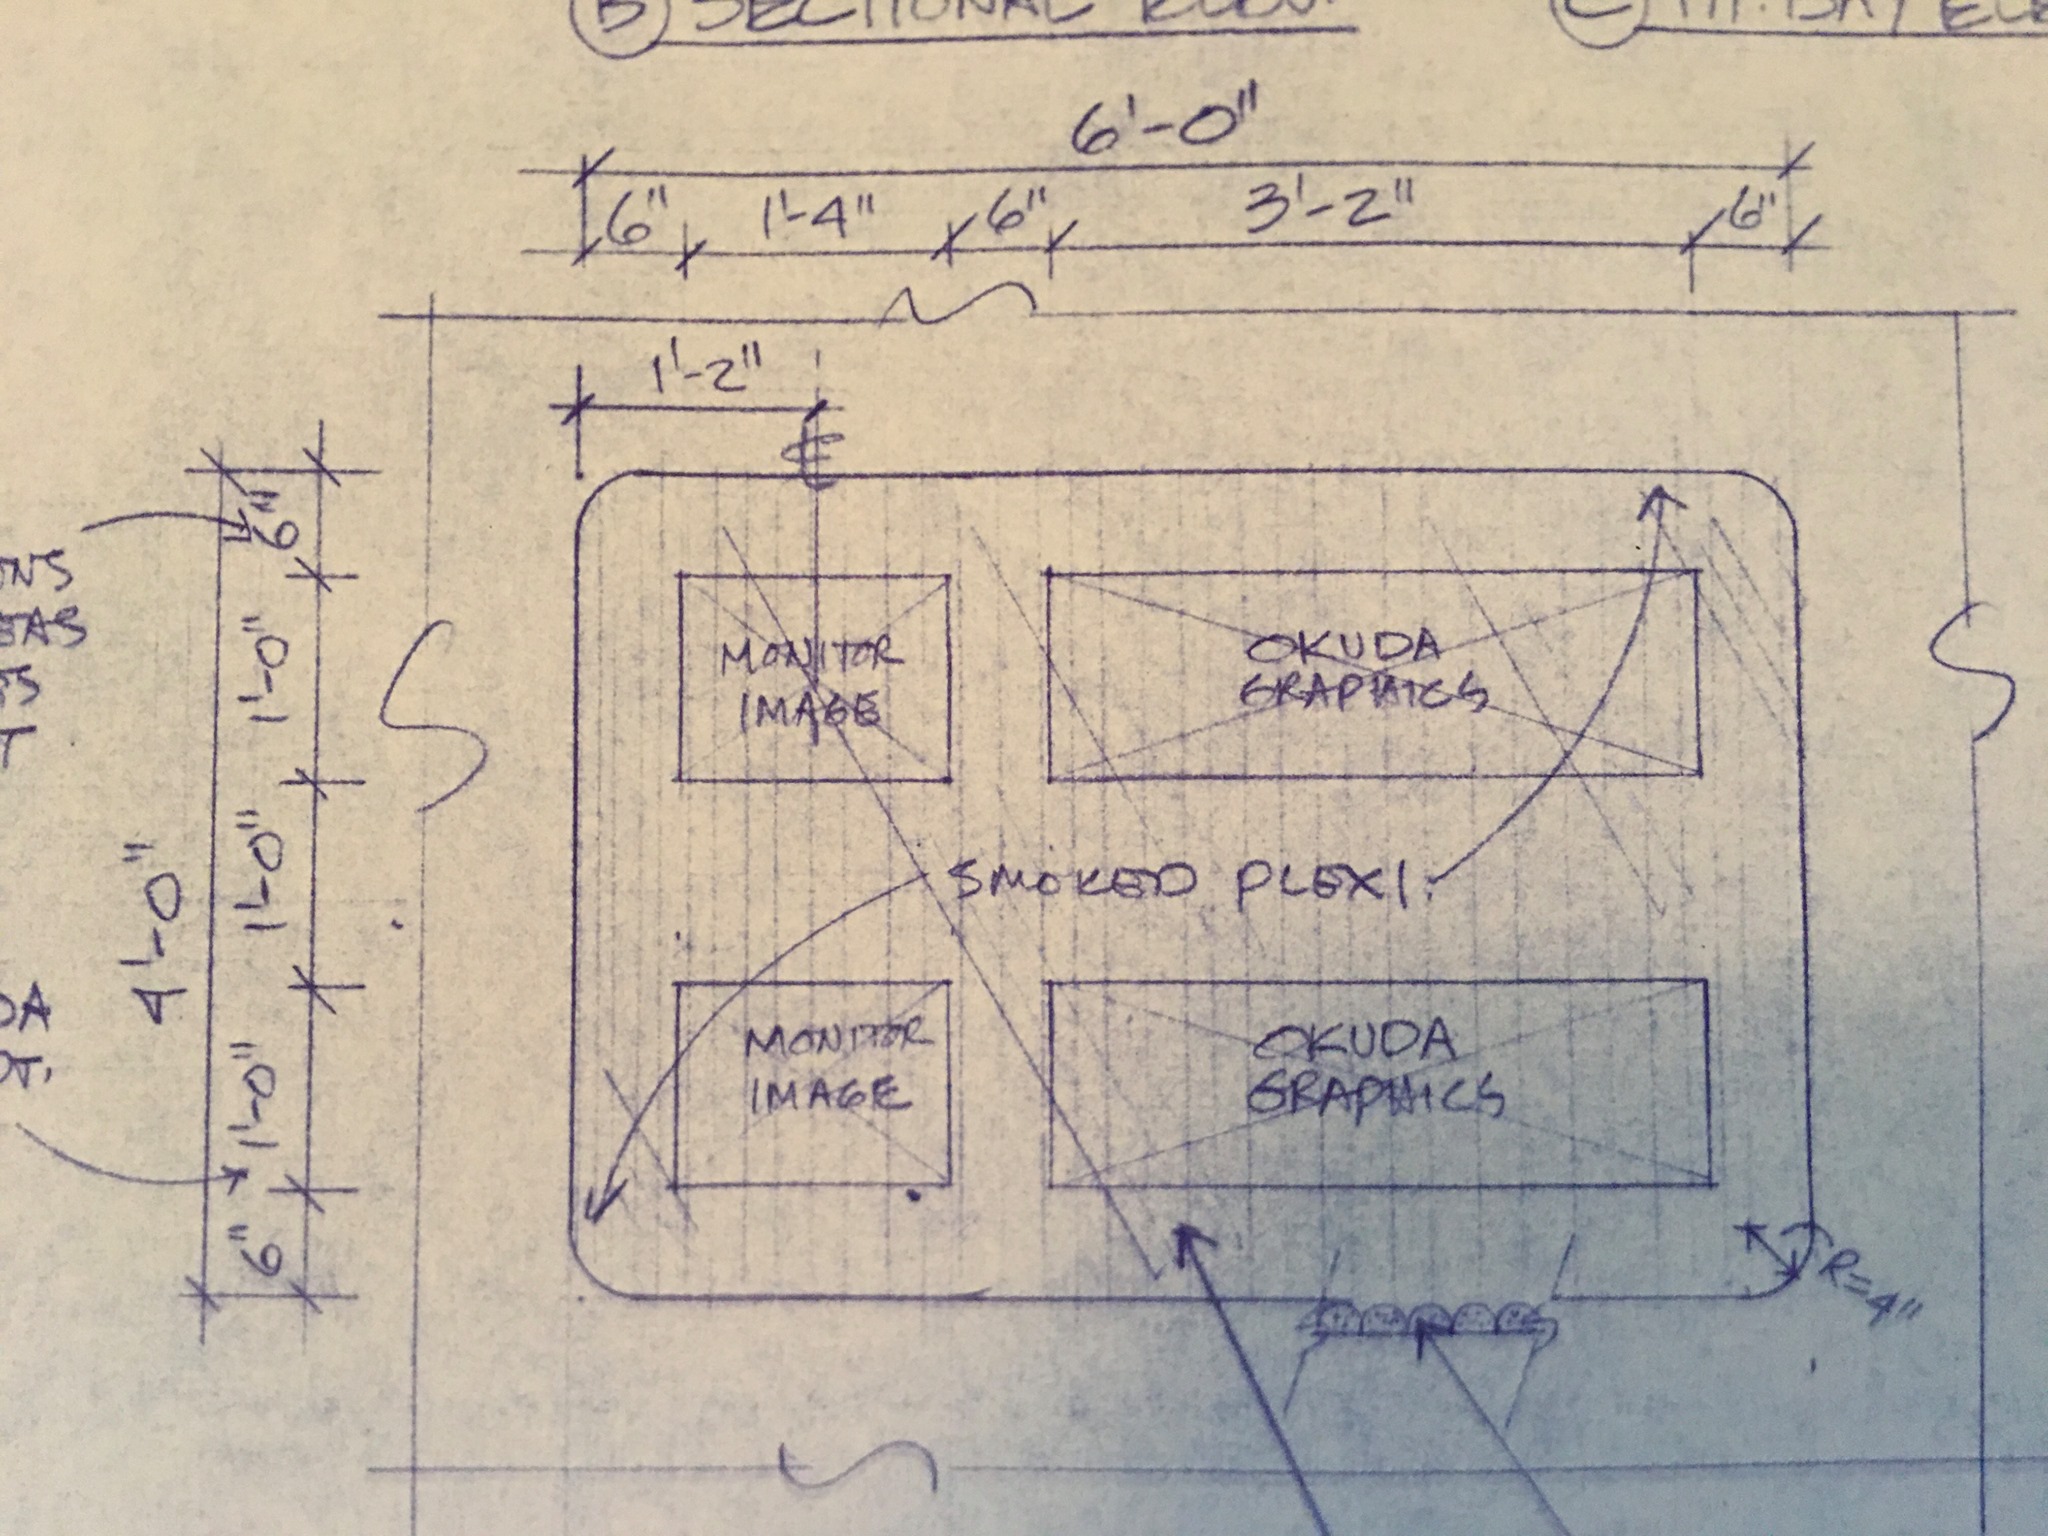 B SECTIONAL ELEV.
C
6'-0"
6" 1'-4" 6" 3'-2" 6"
1'-2"
℄
6"
1'-0"
1'-0"
4'-0"
1'-0"
6"
MONITOR
IMAGE
OKUDA
GRAPHICS
SMOKED PLEXI.
MONITOR
IMAGE
OKUDA
GRAPHICS
R=4"